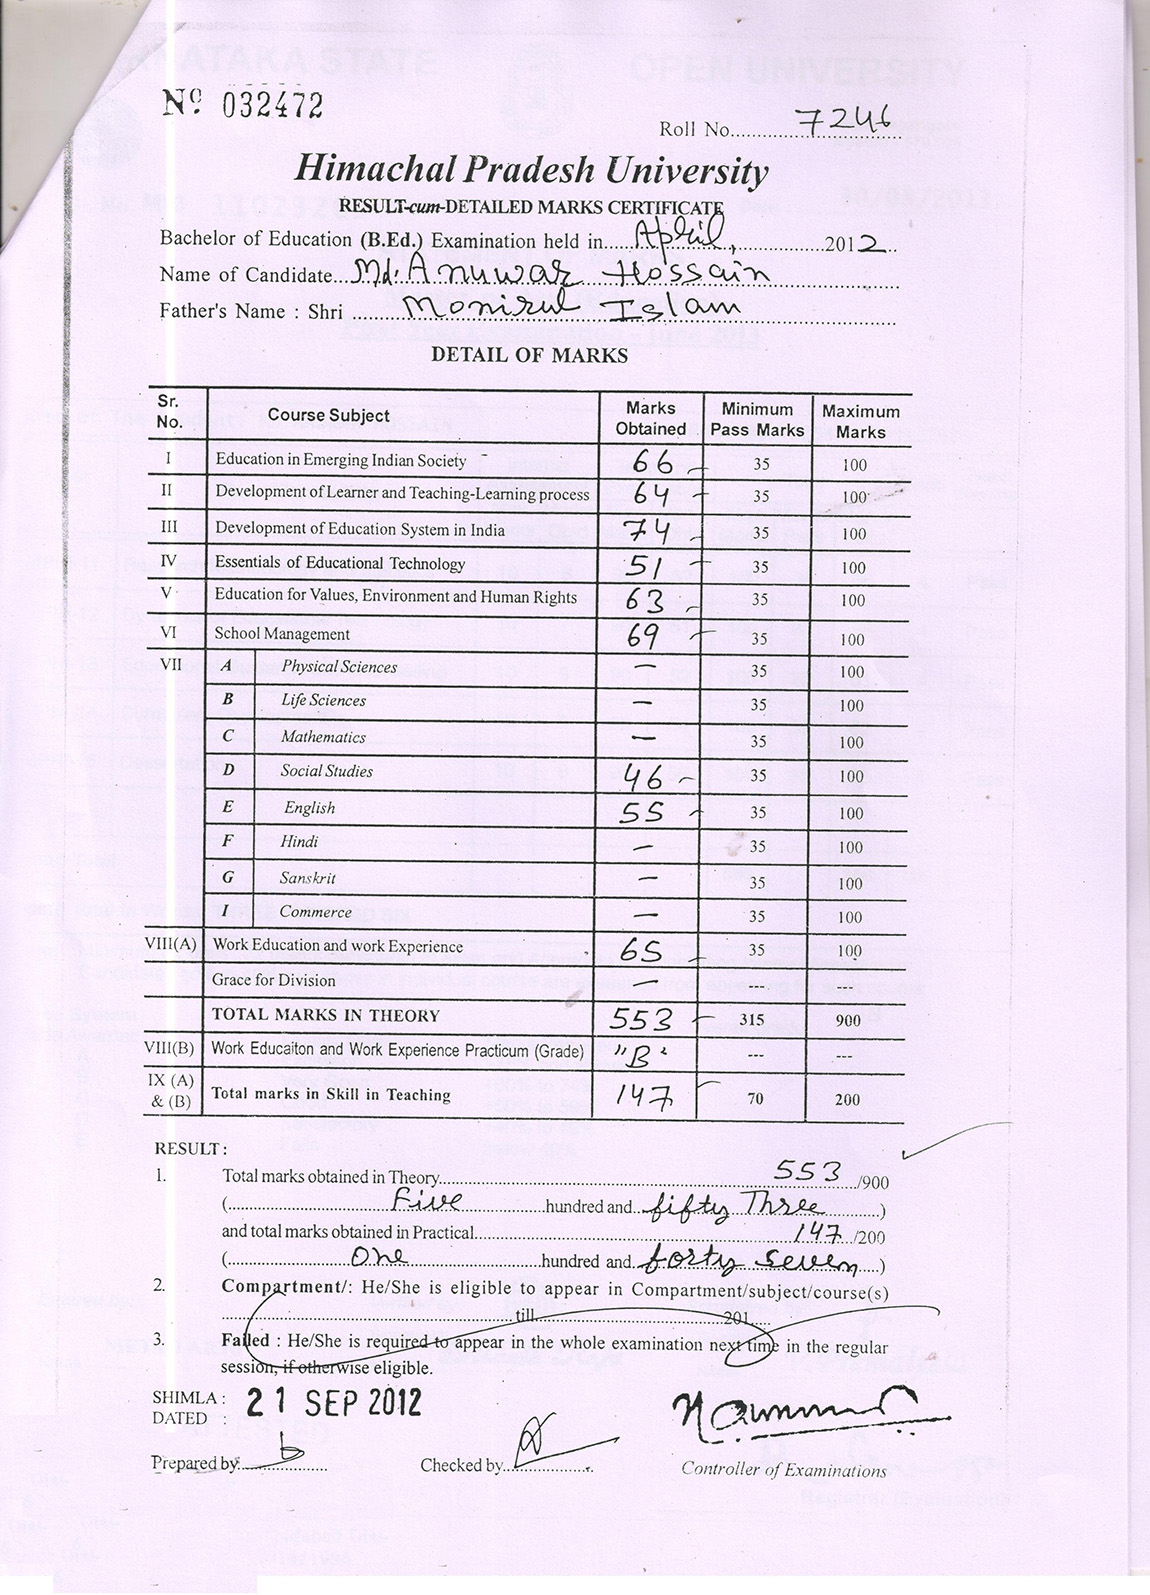 Nº 032472
Roll No. 7246
Himachal Pradesh University
RESULT-cum-DETAILED MARKS CERTIFICATE
Bachelor of Education (B.Ed.) Examination held in April, 2012
Name of Candidate Md. Anuwar Hossain
Father's Name : Shri Monirul Islam
DETAIL OF MARKS
Sr. No. Course Subject Marks Obtained Minimum Pass Marks Maximum Marks
I Education in Emerging Indian Society 66 35 100
II Development of Learner and Teaching-Learning process 64 35 100
III Development of Education System in India 74 35 100
IV Essentials of Educational Technology 51 35 100
V Education for Values, Environment and Human Rights 63 35 100
VI School Management 69 35 100
VII A Physical Sciences — 35 100
B Life Sciences — 35 100
C Mathematics — 35 100
D Social Studies 46 35 100
E English 55 35 100
F Hindi — 35 100
G Sanskrit — 35 100
I Commerce — 35 100
VIII(A) Work Education and work Experience 65 35 100
Grace for Division — --- ---
TOTAL MARKS IN THEORY 553 315 900
VIII(B) Work Educaiton and Work Experience Practicum (Grade) "B" --- ---
IX (A) & (B) Total marks in Skill in Teaching 147 70 200
RESULT :
1. Total marks obtained in Theory 553/900
(Five hundred and fifty Three)
and total marks obtained in Practical 147/200
(One hundred and forty seven)
2. Compartment/: He/She is eligible to appear in Compartment/subject/course(s)
till 201
3. Failed : He/She is required to appear in the whole examination next time in the regular
session, if otherwise eligible.
SHIMLA :
DATED : 21 SEP 2012
Prepared by
Checked by
Controller of Examinations